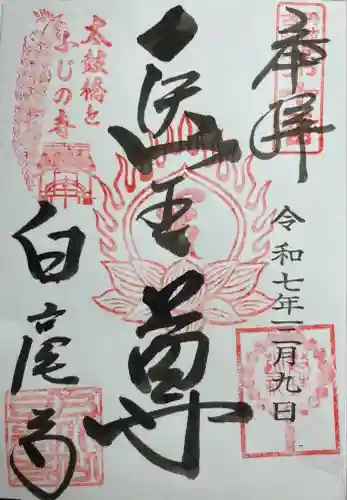 奉拝
令和七年二月九日
医王尊
太鼓橋と
ふじの寺
白毫寺